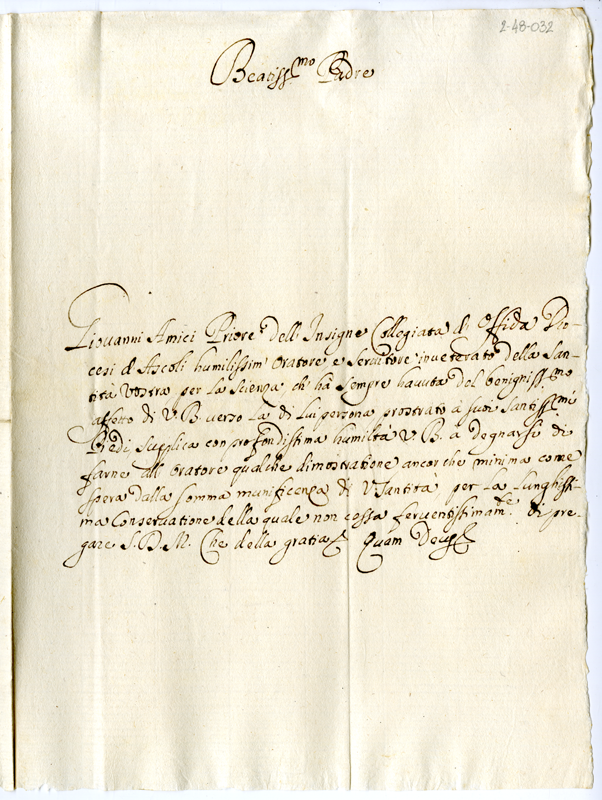 2-48-032
Beatiss.mo Padre
Giovanni Amici Priore dell'Insigne Collegiata di Offida Dio-
cesi d'Ascoli humilissim' Oratore e servitore inveterato della San-
tità Vostra per la scienza ch'hà sempre havuta del benigniss.mo
affetto di V. B. verso la di lui persona prostrato à suoi Santiss.mi
Piedi supplica con profondissima humiltà V. B. a degnarsi di
farne all'Oratore qualche dimostratione ancorche minima come
spera dalla somma munificenza di V. Santità per la lunghissi-
ma Conservatione della quale non cessa ferventissimam.te di pre-
gare S. D. M. Che della gratia Quam Deus